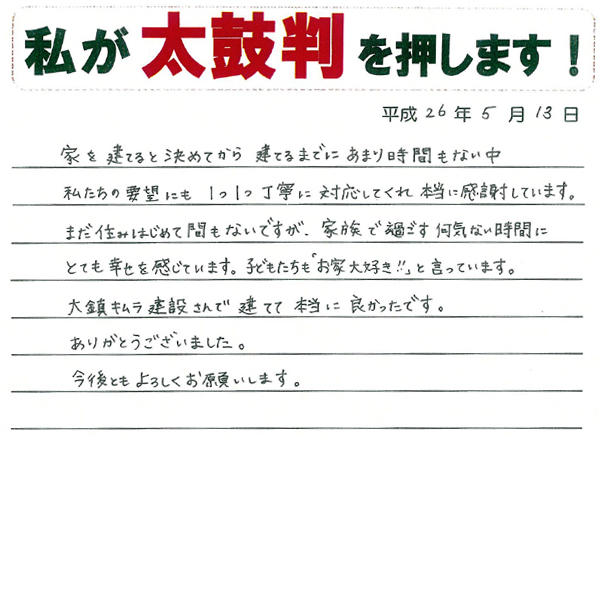 私が太鼓判を押します！
平成26年5月13日
家を建てると決めてから 建てるまでに あまり時間もない中
私たちの要望にも 1つ1つ丁寧に 対応してくれ 本当に感謝しています。
まだ住みはじめて間もないですが、家族で過ごす何気ない時間に
とても幸せを感じています。子どもたちも「お家大好き!!」と言っています。
大鎮キムラ建設さんで 建てて 本当に 良かったです。
ありがとうございました。
今後ともよろしくお願いします。